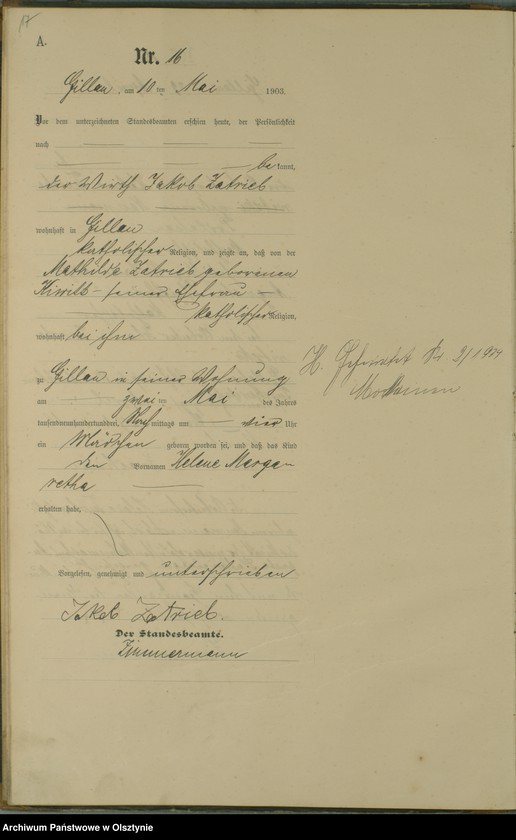 17
A.
Nr. 16
Gillau, am 10 ten Mai 1903.
Vor dem unterzeichneten Standesbeamten erschien heute, der Persönlichkeit
nach
bekannt,
der Wirth Jakob Zatrieb
wohnhaft in Gillau
katholischer Religion, und zeigte an, daß von der
Mathilde Zatrieb geborenen
seiner Ehefrau
katholischer Religion,
wohnhaft bei ihm
zu Gillau in seiner Wohnung
am zwei ten Mai des Jahres
tausendneunhundertunddrei, Nachmittags um vier Uhr
ein Mädchen geboren worden sei, und daß das Kind
den Vornamen Helene Marga-
retha
erhalten habe.
Vorgelesen, genehmigt und unterschrieben
Jakob Zatrieb.
Der Standesbeamte.
Zimmermann
H. Geheiratet Nr. 3/19
Archiwum Państwowe w Olsztynie